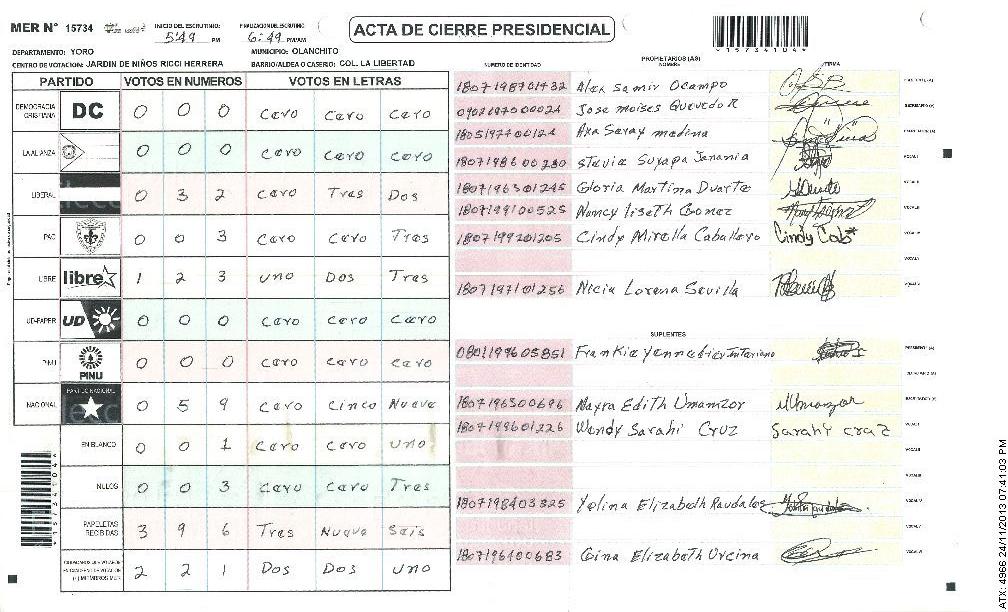 MER N° 15734 INICIO DEL ESCRUTINIO 5:49 PM FINALIZACION DEL ESCRUTINIO 6:49 PM/AM
ACTA DE CIERRE PRESIDENCIAL
*15734104*
DEPARTAMENTO: YORO MUNICIPIO: OLANCHITO
CENTRO DE VOTACION: JARDIN DE NIÑOS RICCI HERRERA BARRIO/ALDEA O CASERIO: COL. LA LIBERTAD
PARTIDO VOTOS EN NUMEROS VOTOS EN LETRAS
DEMOCRACIA CRISTIANA DC 0 0 0 Cero Cero Cero
LA ALIANZA 0 0 0 Cero Cero Cero
LIBERAL 0 3 2 Cero Tres Dos
PAC 0 0 3 Cero Cero Tres
LIBRE libre 1 2 3 uno Dos Tres
UD-FAPER UD 0 0 0 Cero Cero Cero
PINU PINU 0 0 0 Cero Cero Cero
NACIONAL PARTIDO NACIONAL 0 5 9 Cero Cinco Nueve
EN BLANCO 0 0 1 Cero Cero uno
NULOS 0 0 3 Cero Cero Tres
PAPELETAS RECIBIDAS 3 9 6 Tres Nueve Seis
2 2 1 Dos Dos uno
NUMERO DE IDENTIDAD PROPIETARIOS (AS) NOMBRE FIRMA
1807198701432 Alex Samir Ocampo
Jose Moises Quevedo R
1805197400124 Axa Saray medina
1807198600280 Suyapa
1807196301245 Gloria Martina Duarte
1807199100525 Nancy liseth Gomez
1807199201205 Cindy Mirella Caballero Cindy
1807197101256 Nicia Lorena Sevilla
SUPLENTES
0801197605851
1807196500696 Mayra Edith Umamzor
1807199601226 Wendy Sarahi Cruz Sarahy cruz
1807198403325 Yolina Elizabeth Raudales
1807196400683 Gina Elizabeth Urcina
*15734104*
ATX: 4966 24/11/2013 07:41:03 PM